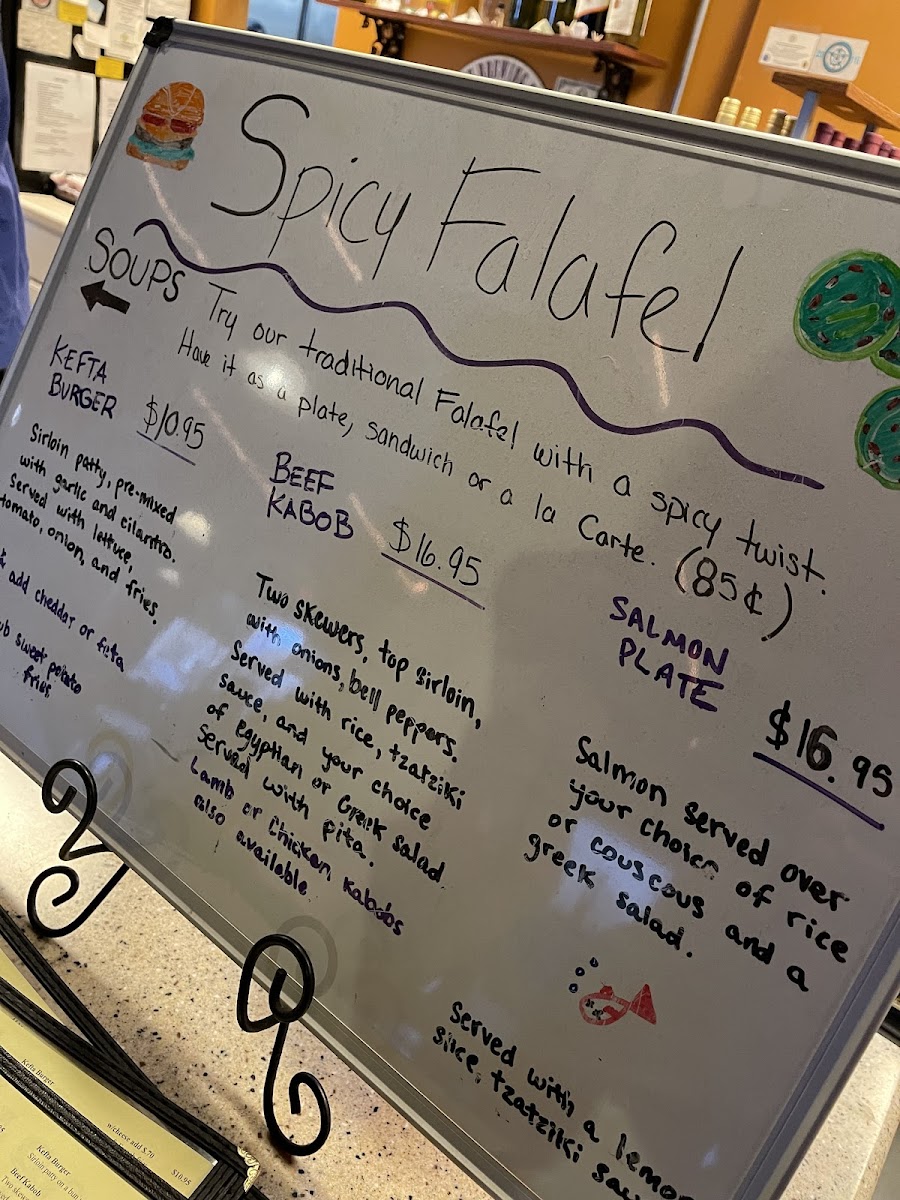 Spicy Falafel
SOUPS
Try our traditional Falafel with a spicy twist.
Have it as a plate, sandwich or a la Carte. (85¢)
KEFTA
BURGER
$10.95
Sirloin patty, pre-mixed
with garlic and cilantro.
Served with lettuce,
tomato, onion, and fries.
add cheddar or feta
sweet potato
fries
BEEF
KABOB
$16.95
Two skewers, top sirloin,
with onions, bell peppers.
Served with rice, tzatziki
sauce, and your choice
of Egyptian or Greek salad.
Served with pita.
Lamb or Chicken kabobs
also available.
SALMON
PLATE
$16.95
Salmon served over
your choice of rice
or couscous and a
greek salad.
Served with a lemon
slice, tzatziki
Kefta Burger
w/cheese add $.70
$10.95
Kefta Burger
Sirloin patty on a
Beef Kabob